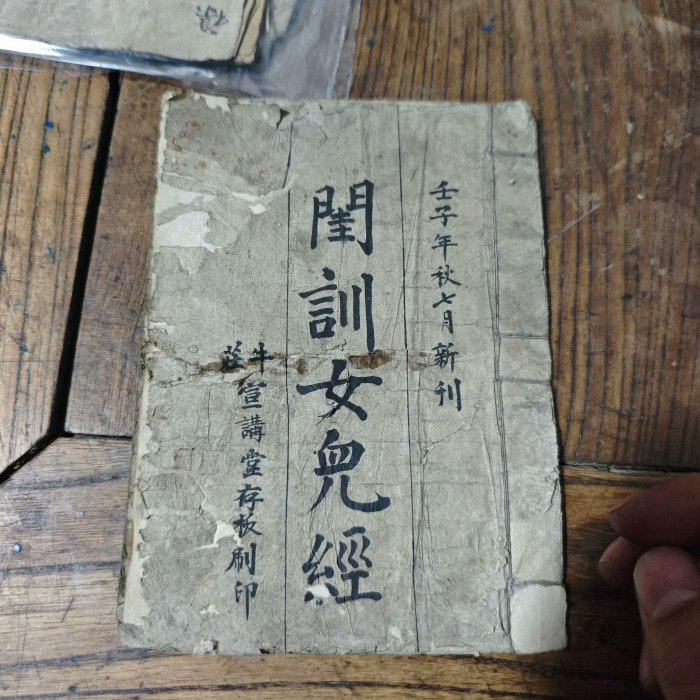 壬子年秋七月新刊
閨訓女兒經
牛莊宣講堂存板刷印